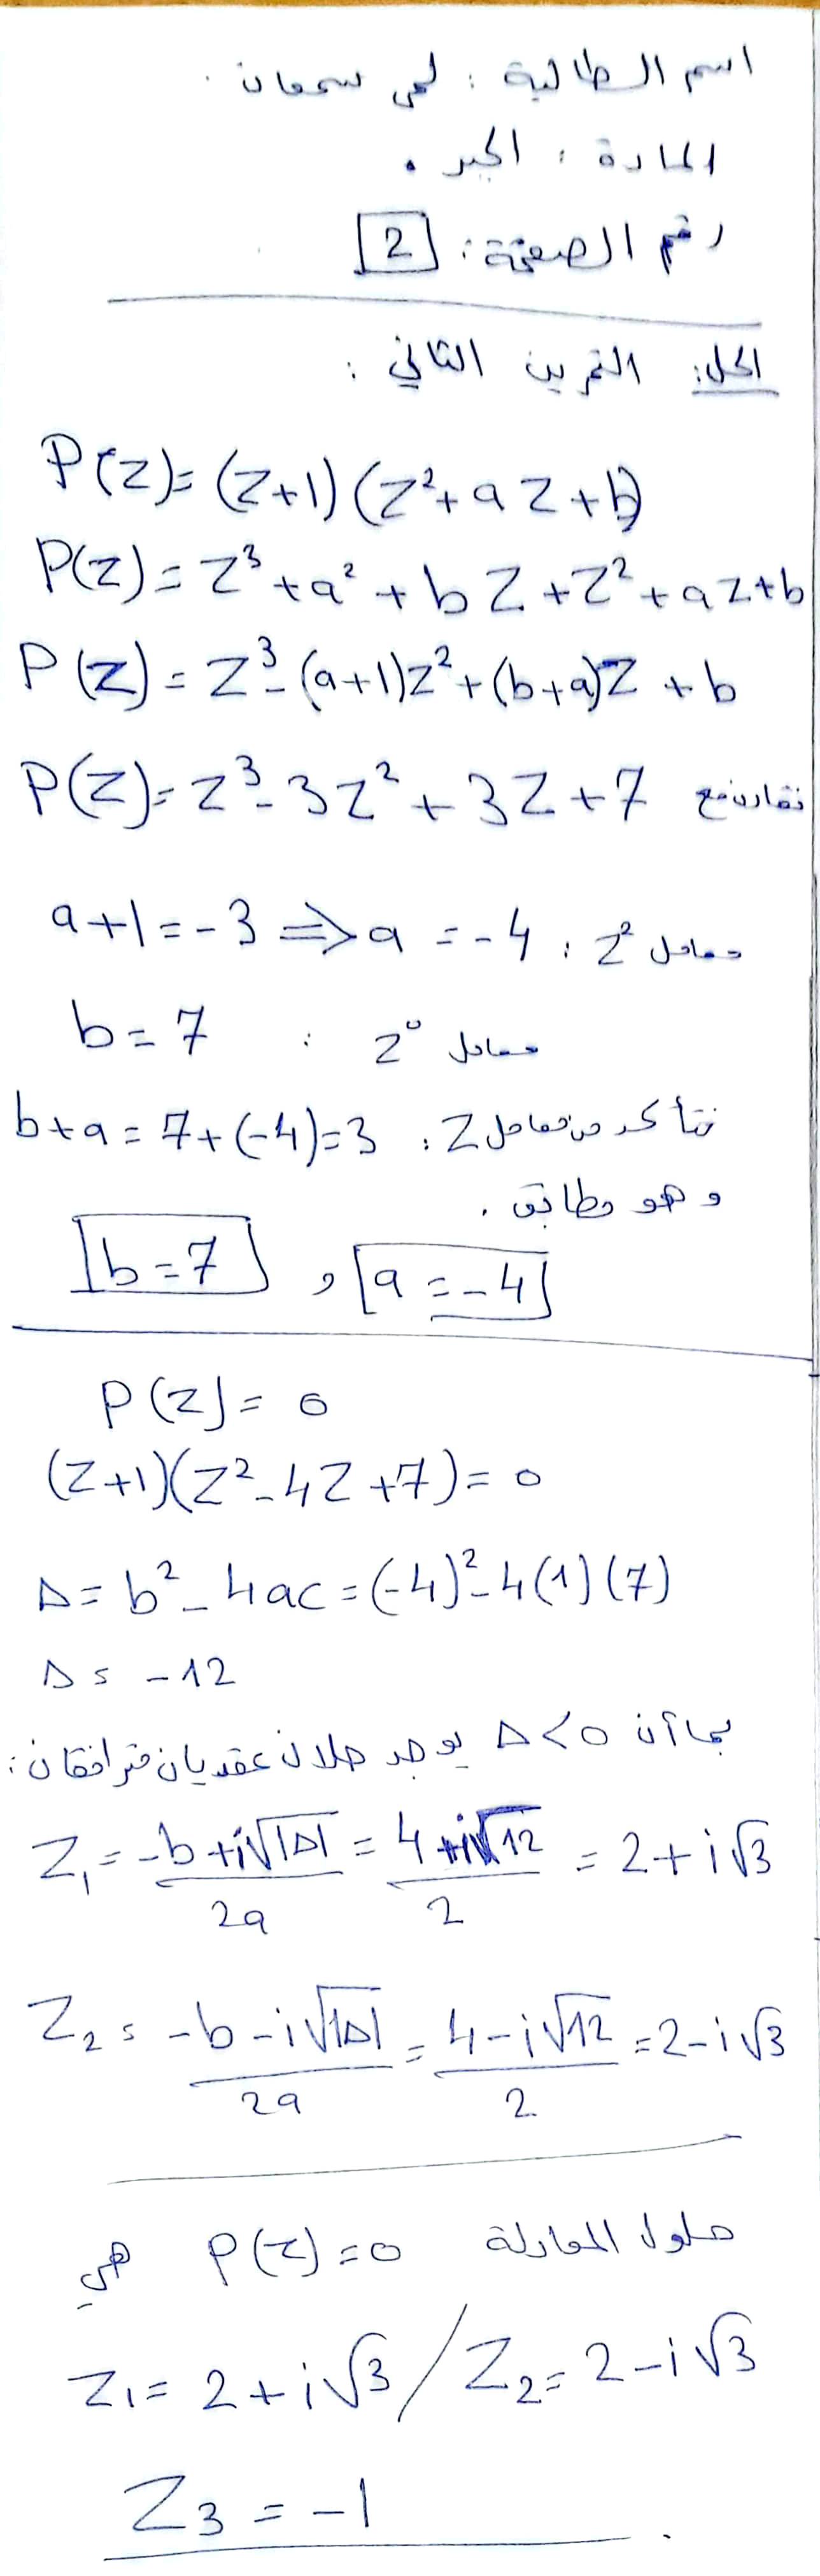 اسم الطالبة : لمى سمعان .
المادة : الجبر .
رقم الصفحة : 2
الحل: التمرين الثاني :
P(z)= (z+1) (z²+ a z + b)
P(z) = z³ + a² + b z + z² + a z + b
P(z) = z³ - (a+1)z² + (b+a)z + b
P(z) = z³ - 3z² + 3z + 7 نقارن مع
a+1 = -3 => a = -4 : z² معامل
b = 7 : z⁰ معامل
b+a = 7+(-4)=3 : z نتأكد من معامل
وهو مطابق .
b=7 , a = -4
P(z) = 0
(z+1)(z² - 4z + 7) = 0
Δ = b² - 4ac = (-4)² - 4(1)(7)
Δ = -12
بما أن Δ<0 يوجد حلان عقديان مترافقان :
z₁ = (-b + i√|Δ|)/2a = (4 + i√12)/2 = 2 + i√3
z₂ = (-b - i√|Δ|)/2a = (4 - i√12)/2 = 2 - i√3
حلول المعادلة P(z) = 0 هي
z₁ = 2 + i√3 / z₂ = 2 - i√3
z₃ = -1 .